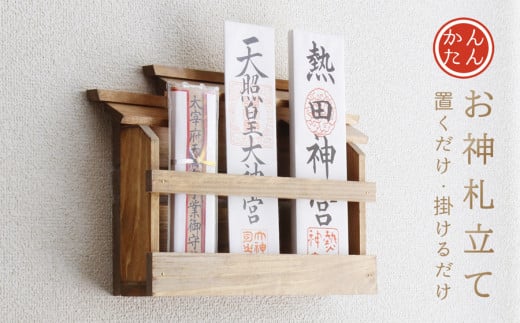 かんたん
お神札立て
置くだけ・掛けるだけ
熱田神宮
天照皇大神宮
太宰府天
学業御守